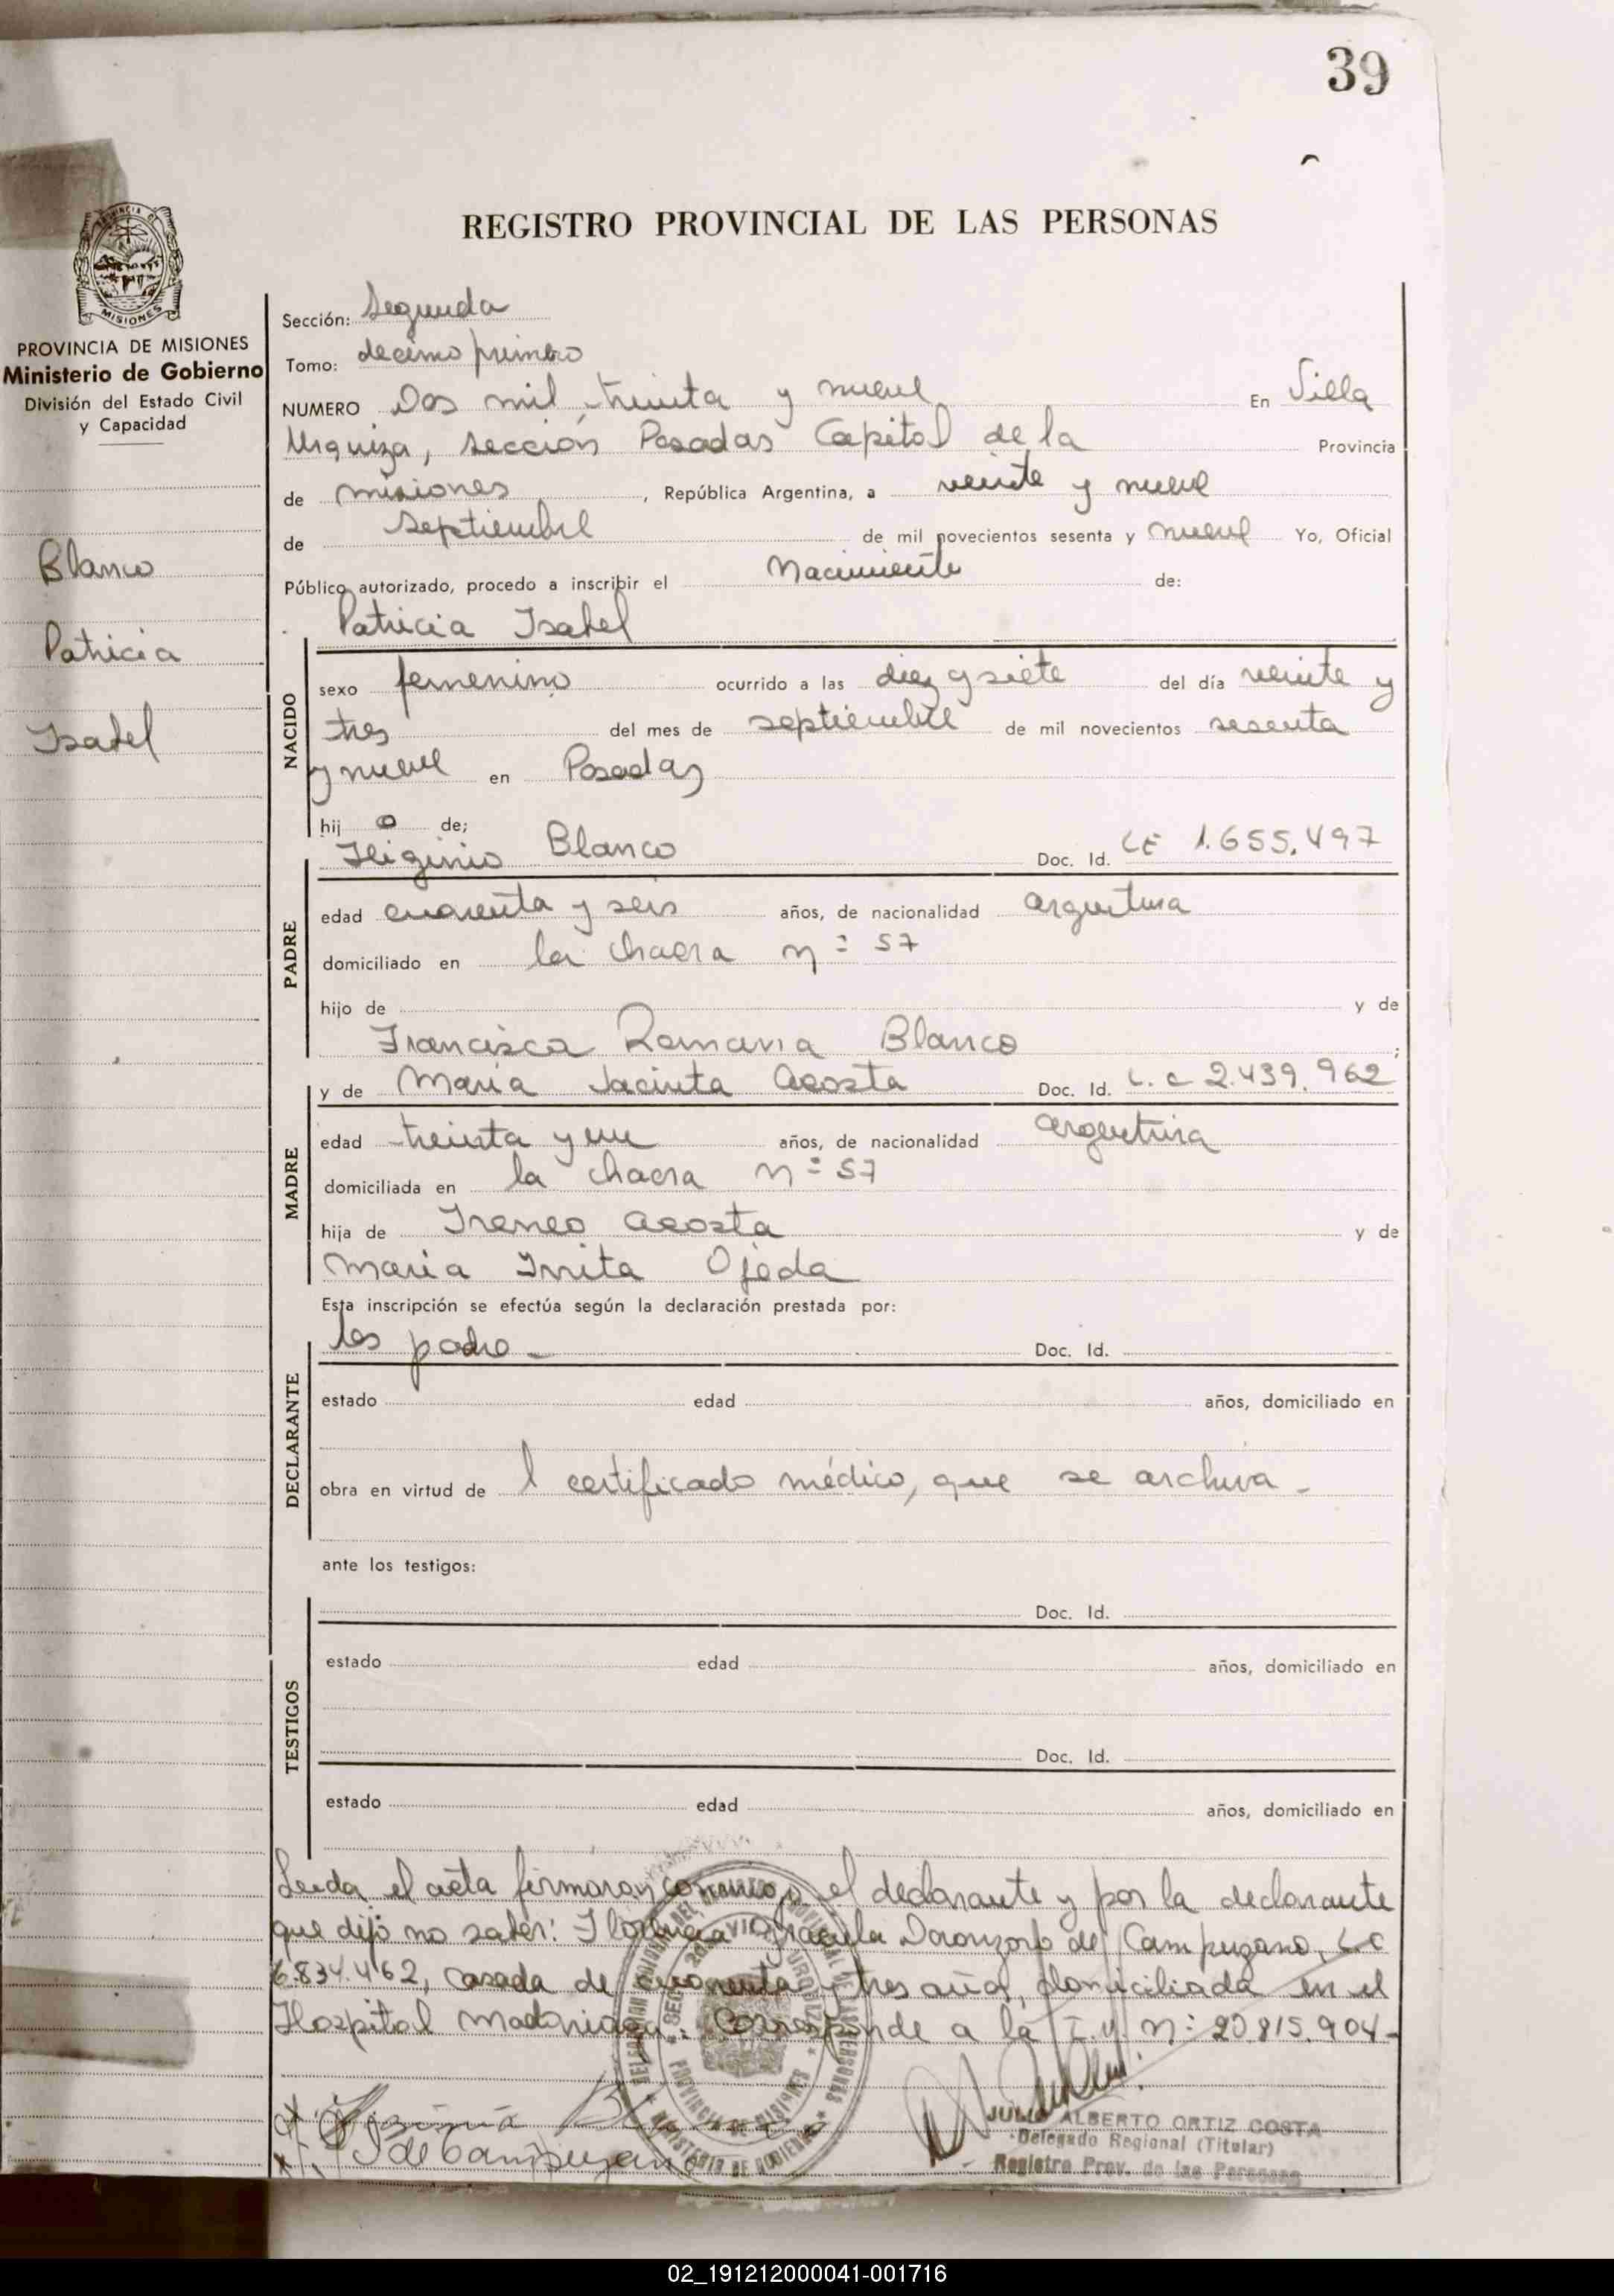 39
REGISTRO PROVINCIAL DE LAS PERSONAS
MISIONES
PROVINCIA DE MISIONES
Ministerio de Gobierno
División del Estado Civil
y Capacidad
Blanco
Patricia
Isabel
Sección: Segunda
Tomo: decimo primero
NUMERO Dos mil treinta y nueve En Villa
Urquiza, sección Posadas Capital de la Provincia
de misiones, República Argentina, a veinte y nueve
de septiembre de mil novecientos sesenta y nueve Yo, Oficial
Público autorizado, procedo a inscribir el Nacimiento de:
Patricia Isabel
NACIDO
sexo femenino ocurrido a las diez y siete del día veinte y
tres del mes de septiembre de mil novecientos sesenta
y nueve en Posadas
hij a de;
Higinio Blanco Doc. Id. LE 1.655.497
PADRE
edad cuarenta y seis años, de nacionalidad argentina
domiciliado en la chacra nº 57
hijo de y de
Francisca Romana Blanco ;
y de Maria Jacinta Acosta Doc. Id. L.C 2.439.962
MADRE
edad treinta y un años, de nacionalidad argentina
domiciliada en la chacra nº 57
hija de Ireneo Acosta y de
Maria Ojeda
Esta inscripción se efectúa según la declaración prestada por:
los padre - Doc. Id.
DECLARANTE
estado edad años, domiciliado en
obra en virtud de l certificado médico, que se archiva -
ante los testigos:
Doc. Id.
TESTIGOS
estado edad años, domiciliado en
Doc. Id.
estado edad años, domiciliado en
Leida el acta firmaron conmigo, el declarante y por la declarante
que dijo no saber: Graciela de Campuzano, L.C
6.834.462, casada de cuarenta y tres años, domiciliada en el
Hospital Madariaga. Corresponde a la nº 20.815.904-
de Campuzano
JULIO ALBERTO ORTIZ COSTA
Delegado Regional (Titular)
Registro Prov. de las Personas
02_191212000041-001716